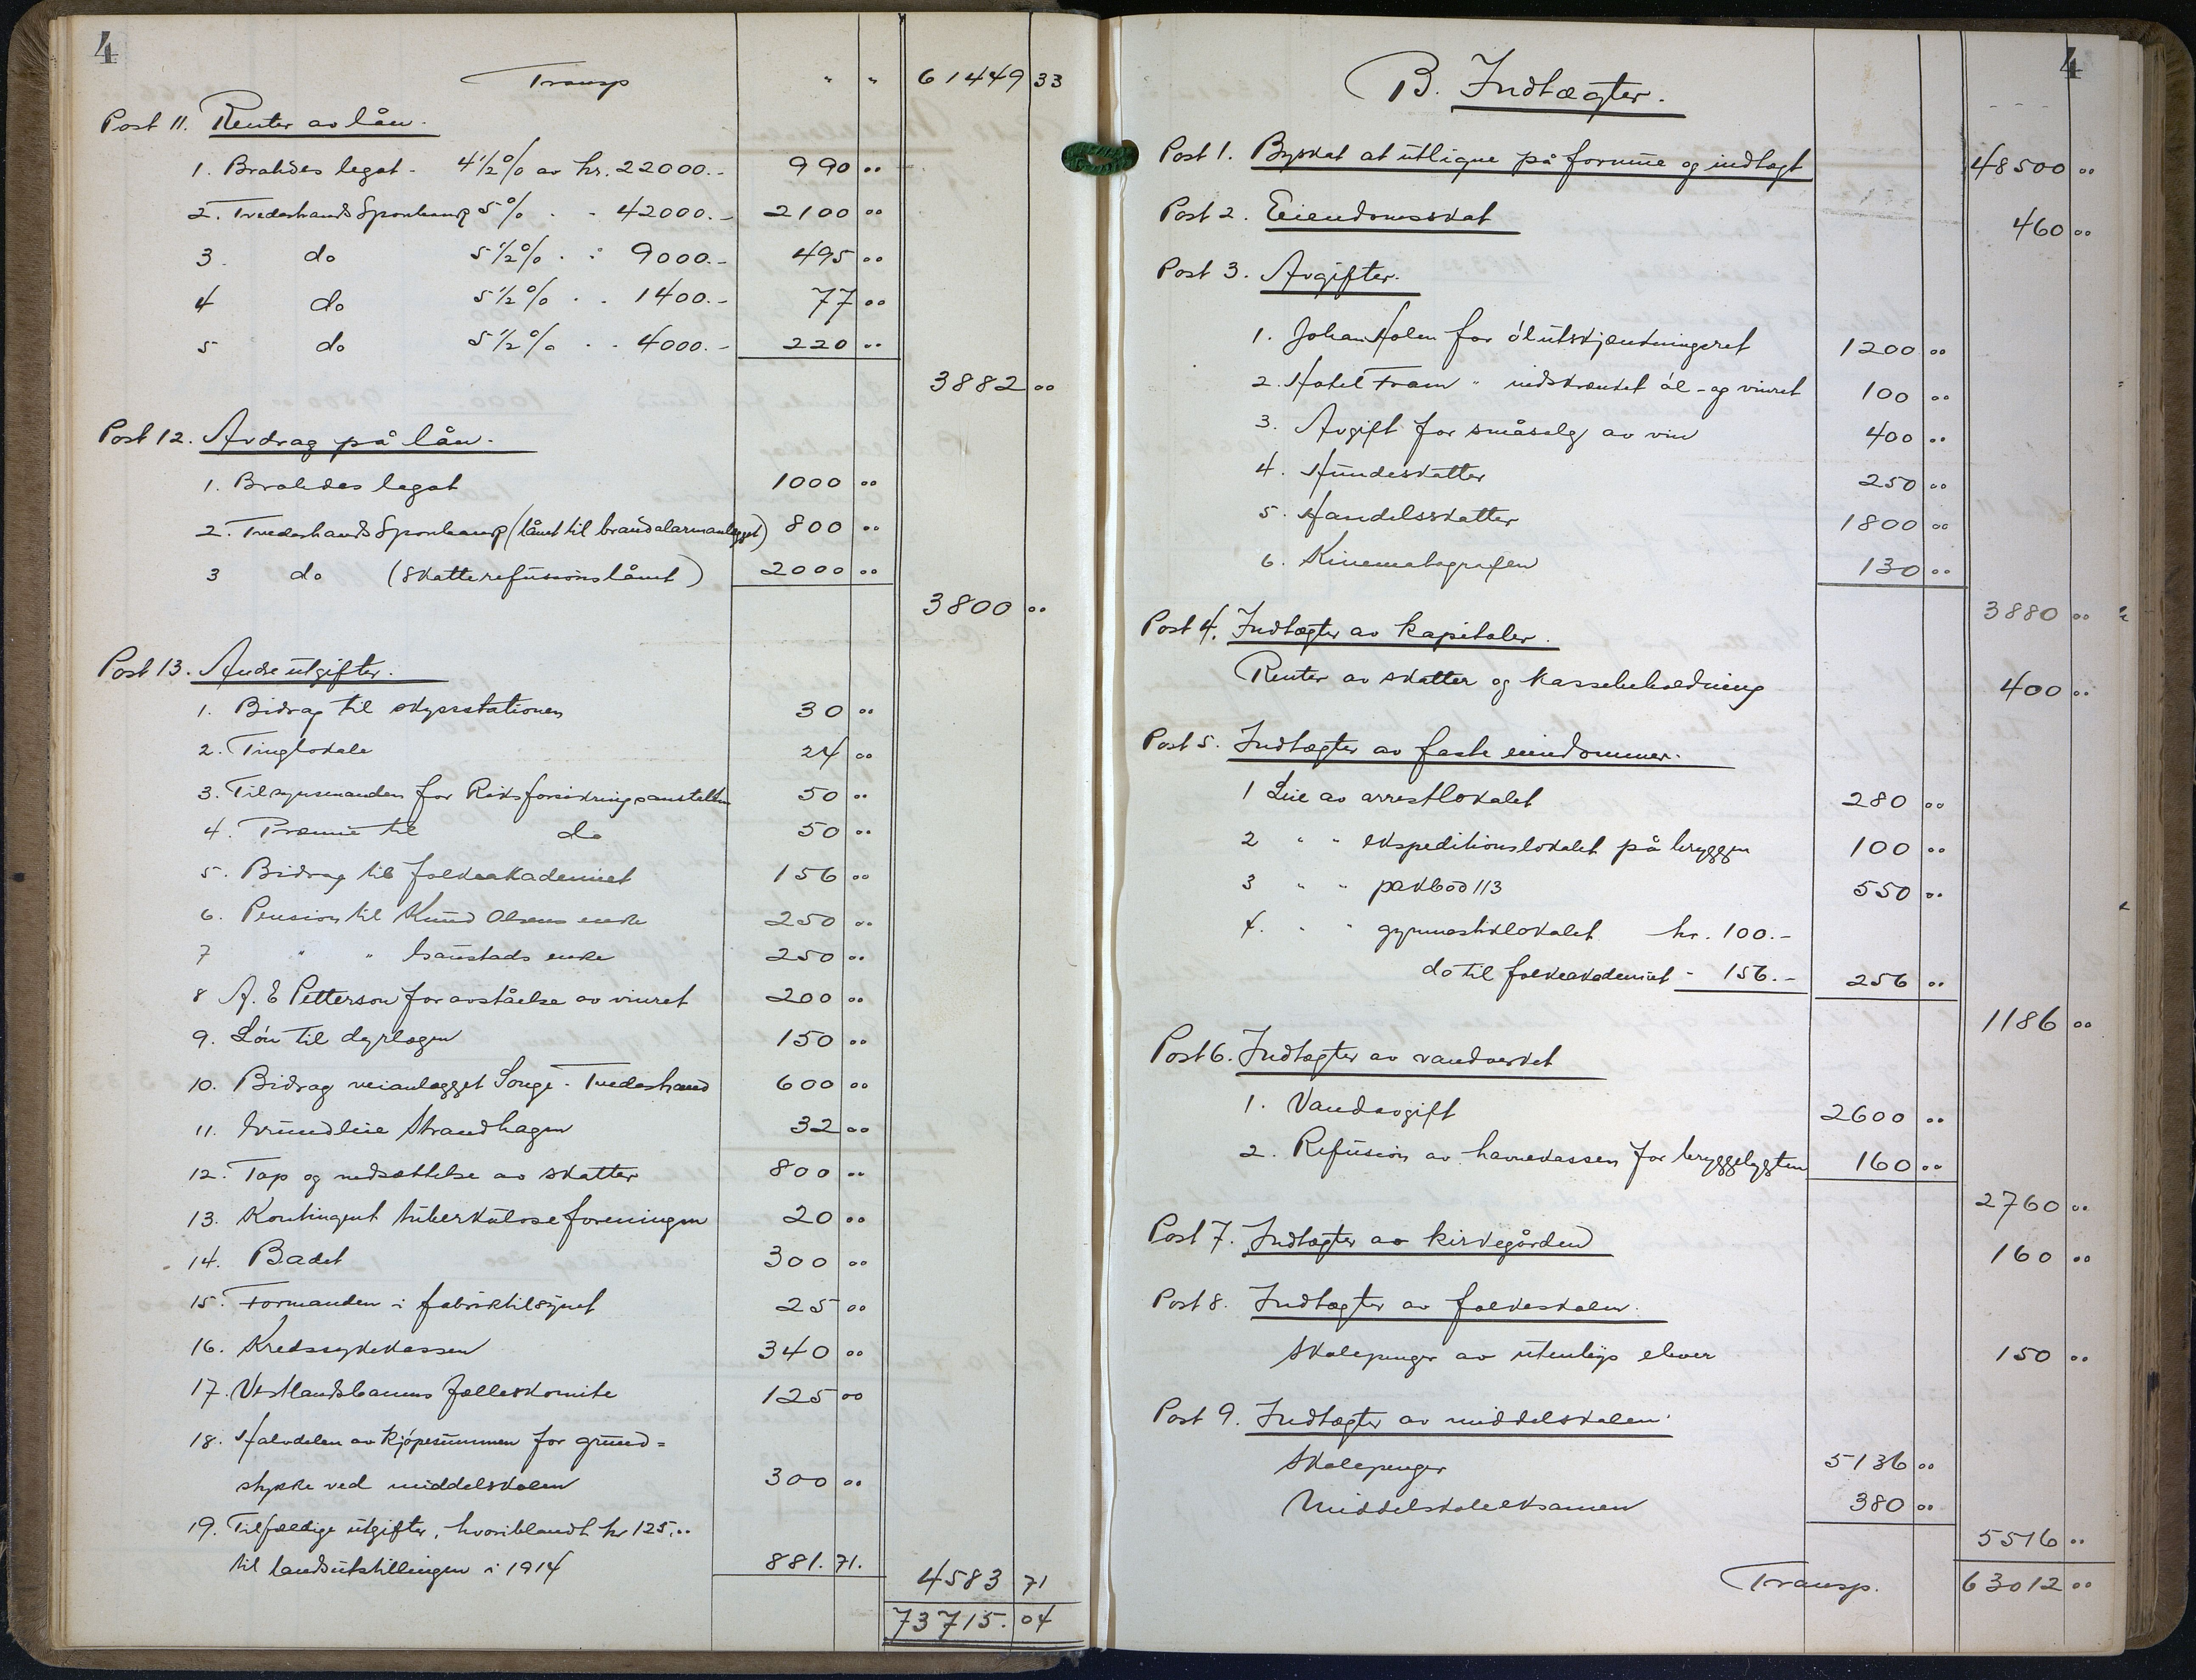 4
Transp " " 61449 33
Post 11. Renter av lån.
1. Brahdes legat - 4 1/2 % av kr. 22000.- 990 "
2. Tvedestrands Sparekasse 5 % " - 42000.- 2100 "
3. do 5 1/2 % . : 9000.- 495 "
4 do 5 1/2 % . . 1400.- 77 "
5 do 5 1/2 % . . 4000.- 220 "
3882 "
Post 12. Avdrag på lån.
1. Brahdes legat 1000 "
2. Tvedestrands Sparekasse (lånet til brandalarmanlægget) 800 "
3 do (Skatterefusionslånet) 2000 "
3800 "
Post 13. Andre utgifter.
1. Bidrag til skysstationen 30 "
2. Tinglokale 24 "
3. Tilsynsmanden for Riksforsikringsanstalten 50 "
4. Præmie til do 50 "
5. Bidrag til folkeakademiet 156 "
6. Pension til Knud Olsens enke 250 "
7 " " enke 250 "
8 A. E Petterson for avståelse av vinret 200 "
9. Løn til dyrlægen 150 "
10. Bidrag veianlægget Songe - Tvedestrand 600 "
11. Grundleie Strandhagen 32 "
12. Tap og nedsættelse av skatter 800 "
13. Kontingent tuberkuloseforeningen 20 "
14. Badet 300 "
15. Formanden i fabriktilsynet 25 "
16. Kredssykekassen 340 "
17. Vestlandsbanens fælleskomite 125 00
18. Halvdelen av kjøpesummen for grund=
stykke ved middelskolen 300 "
19. Tilfældige utgifter, hvoriblandt kr 125,"
til landsutstillingen i 1914 881. 71.
4583 71
73715. 04
4
B. Indtægter.
Post 1. Byskat at utligne på formue og indtægt 48500 "
Post 2. Eiendomsskat 460 "
Post 3. Avgifter.
1. Johan Holen for ølutskjænkningsret 1200 "
2. Hotel Fram " indskrænket øl- og vinret 100 "
3. Avgift for småsalg av vin 400 "
4. Hundeskatter 250 "
5. Handelsskatter 1800 "
6. Kinematografen 130 "
3880 "
Post 4. Indtægter av kapitaler.
Renter av skatter og kassebeholdning 400 "
Post 5. Indtægter av faste eiendommer.
1 Leie av arrestlokalet 280 "
2 " " ekspeditionslokalet på bryggen 100 "
3 " " pakbod 113 550 "
4. " " gymnastiklokalet kr. 100.-
do til folkeakademiet - 156.- 256 "
1186 "
Post 6. Indtægter av vandverket
1. Vandavgift 2600 "
2. Refusion av havnekassen for bryggelygten 160 "
2760 "
Post 7. Indtægter av kirkegården 160 "
Post 8. Indtægter av folkeskolen.
Skolepenger av utenbys elever 150 "
Post 9. Indtægter av middelskolen.
Skolepenger 5136 "
Middelskoleeksamen 380 "
5516 "
Transp. 63012 "